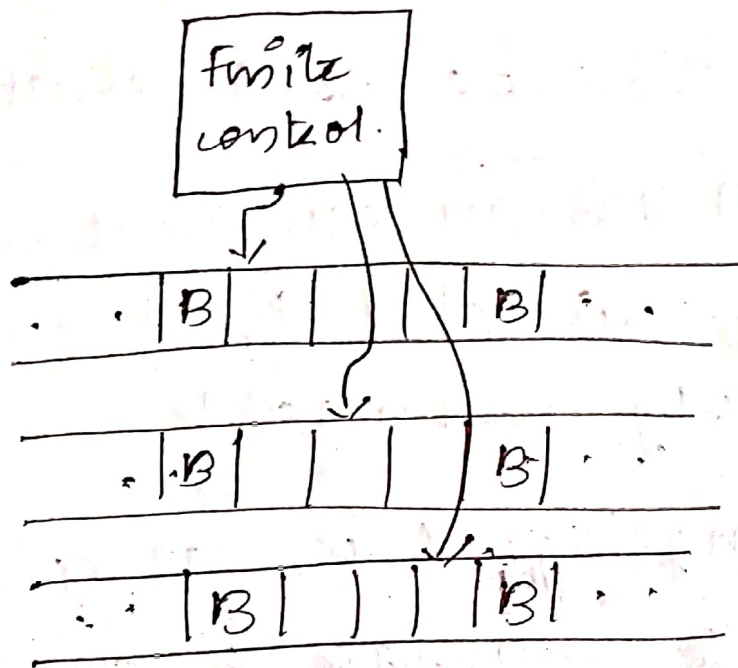 Finite
control.
. . B B . .
. . B B . .
. . B B . .